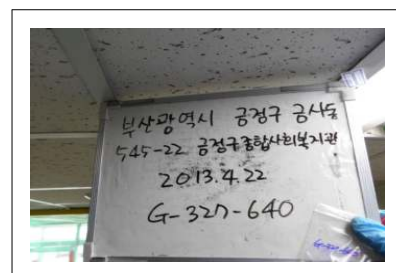 부산광역시 금정구 금사동
545-22 금정구종합사회복지관
2013.4.22
G-327-640